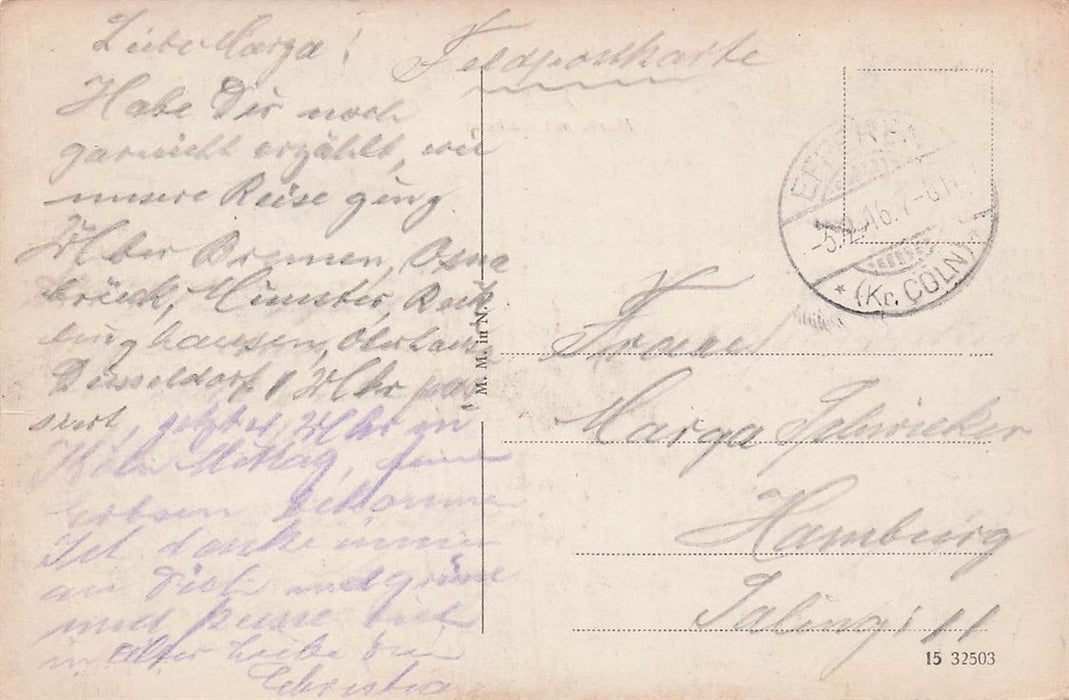 Liebe Marga!
Habe Dir noch
garnicht erzählt, wie
unsere Reise ging.
Über Bremen, Osna
brück, Münster, Reck
linghausen, Oberhaus
Düsseldorf Uhr pas
siert, Uhr in
Köln Mittag,
Erbsen bekommen
Ich denke immer
an Dich und grüsse
und küsse Dich
in alter Liebe Dein
Christian
Feldpostkarte
-5. 16.7-8N.
* (Kr. CÖLN) *
Frau
Marga Schricker
Hamburg
11
M. M. in N.
15 32503